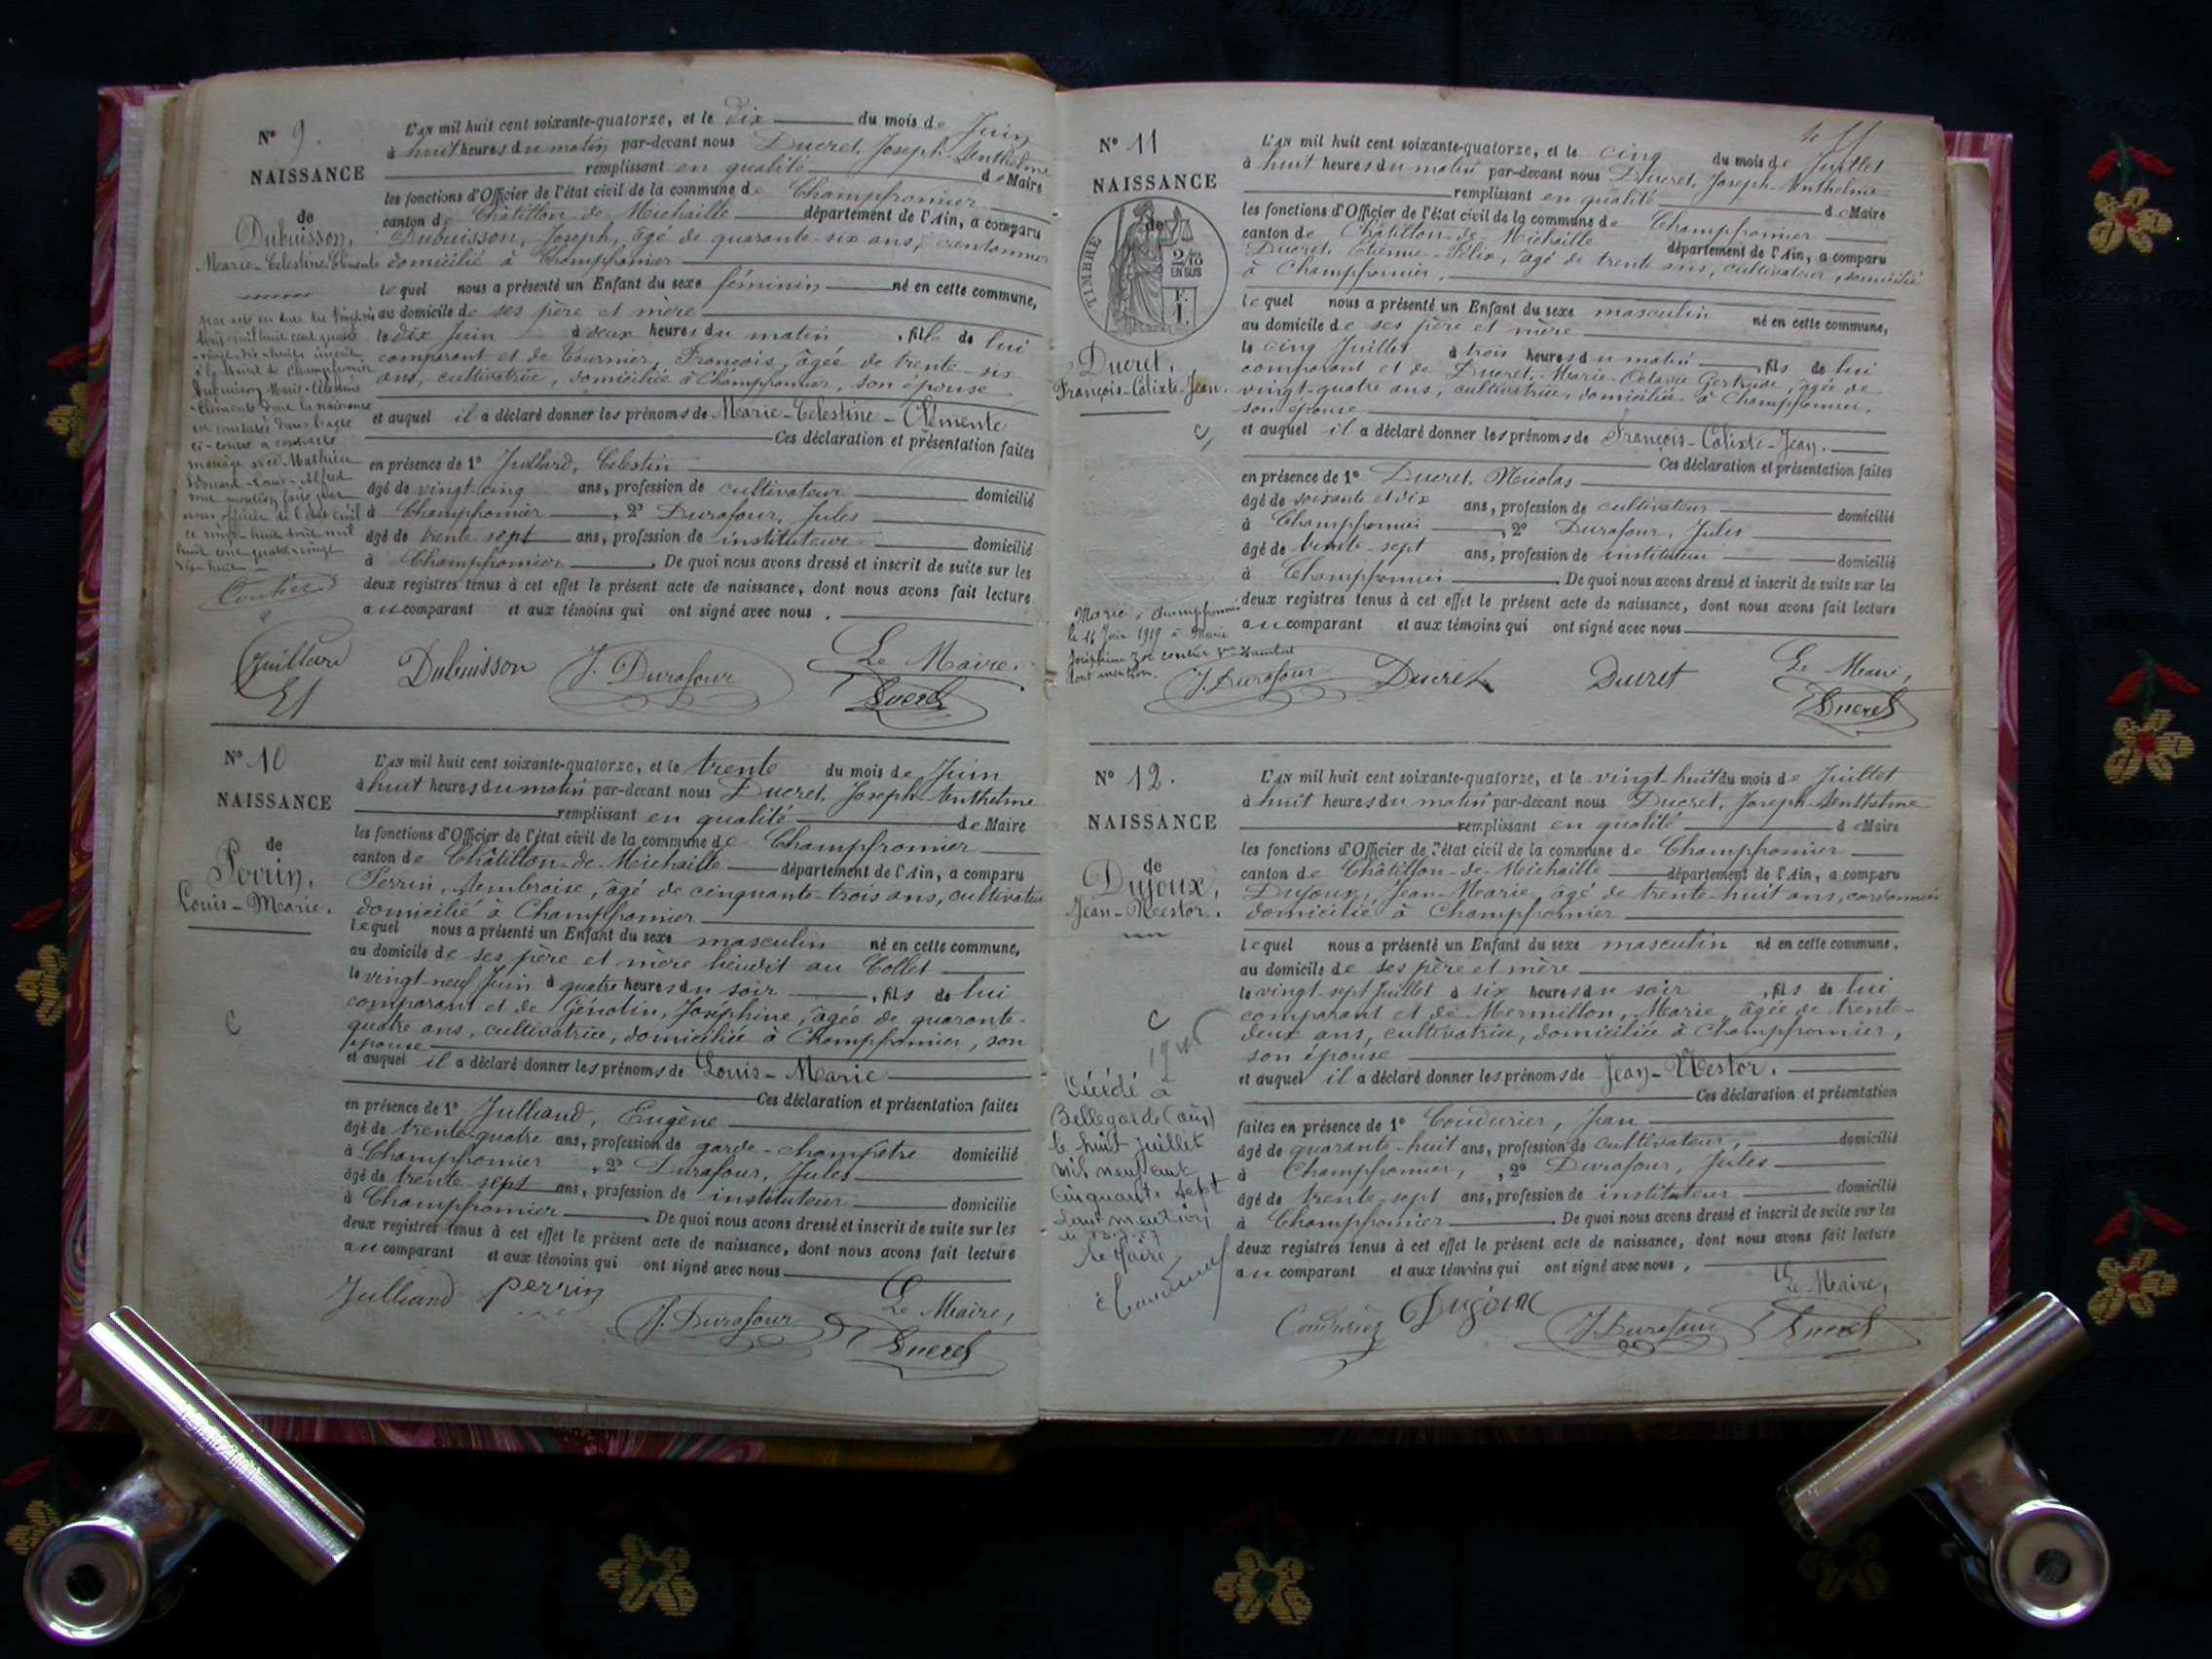 N° 9.
NAISSANCE
de
Dubuisson,
Marie-Celestine-Clémente
L'AN mil huit cent soixante-quatorze, et le dix du mois de Juin
à huit heures du matin par-devant nous Ducret, Joseph-Anthelme
remplissant en qualité de Maire
les fonctions d'Officier de l'état civil de la commune de Champfromier
canton de Châtillon-de-Michaille département de l'Ain, a comparu
Dubuisson, Joseph, âgé de quarante-six ans, cantonnier
domicilié à Champfromier
lequel nous a présenté un Enfant du sexe féminin né en cette commune,
au domicile de ses père et mère
le dix Juin à deux heures du matin, fille de lui
comparant et de Tournier, François, âgée de trente-six
ans, cultivatrice, domiciliée à Champfromier, son épouse
et auquel il a déclaré donner les prénoms de Marie-Celestine-Clémente
Ces déclaration et présentation faites
en présence de 1° Juillard, Celestin
âgé de vingt-cinq ans, profession de cultivateur domicilié
à Champfromier, 2° Durafour, Jules
âgé de trente-sept ans, profession de instituteur domicilié
à Champfromier. De quoi nous avons dressé et inscrit de suite sur les
deux registres tenus à cet effet le présent acte de naissance, dont nous avons fait lecture
au comparant et aux témoins qui ont signé avec nous.
à la Mairie de Champfromier
Dubuisson Marie-Célestine
Clémente dont la naissance
est constatée dans l'acte
ci-contre a contracté
mariage avec Mathieu
Edouard-Louis-Alfred
Coutier
Dubuisson J. Durafour Le Maire,
Ducret
N° 10
NAISSANCE
de
Perrin,
Louis-Marie.
L'AN mil huit cent soixante-quatorze, et le trente du mois de Juin
à huit heures du matin par-devant nous Ducret, Joseph-Anthelme
remplissant en qualité de Maire
les fonctions d'Officier de l'état civil de la commune de Champfromier
canton de Châtillon-de-Michaille département de l'Ain, a comparu
Perrin, Ambroise, âgé de cinquante-trois ans, cultivateur
domicilié à Champfromier
lequel nous a présenté un Enfant du sexe masculin né en cette commune,
au domicile de ses père et mère lieudit au Collet
le vingt-neuf Juin à quatre heures du soir, fils de lui
comparant et de Génolin, Joséphine, âgée de quarante-
quatre ans, cultivatrice, domiciliée à Champfromier, son
épouse
et auquel il a déclaré donner les prénoms de Louis-Marie
Ces déclaration et présentation faites
en présence de 1° Julliand, Eugène
âgé de trente-quatre ans, profession de garde-champêtre domicilié
à Champfromier, 2° Durafour, Jules
âgé de trente-sept ans, profession de instituteur domicilié
à Champfromier. De quoi nous avons dressé et inscrit de suite sur les
deux registres tenus à cet effet le présent acte de naissance, dont nous avons fait lecture
au comparant et aux témoins qui ont signé avec nous
Julliand Perrin J. Durafour Le Maire,
Ducret
N° 11
NAISSANCE
de
TIMBRE
2/10
EN SUS
Ducret,
François-Calixte-Jean.
L'AN mil huit cent soixante-quatorze, et le cinq du mois de Juillet
à huit heures du matin par-devant nous Ducret, Joseph-Anthelme
remplissant en qualité de Maire
les fonctions d'Officier de l'état civil de la commune de Champfromier
canton de Châtillon-de-Michaille département de l'Ain, a comparu
Ducret, Etienne-Félix, âgé de trente ans, cultivateur, domicilié
à Champfromier,
lequel nous a présenté un Enfant du sexe masculin né en cette commune,
au domicile de ses père et mère
le cinq Juillet à trois heures du matin, fils de lui
comparant et de Ducret, Marie-Octavie Gertrude, âgée de
vingt-quatre ans, cultivatrice, domiciliée à Champfromier,
son épouse
et auquel il a déclaré donner les prénoms de François-Calixte-Jean.
Ces déclaration et présentation faites
en présence de 1° Ducret, Nicolas
âgé de soixante et dix ans, profession de cultivateur domicilié
à Champfromier, 2° Durafour, Jules
âgé de trente-sept ans, profession de instituteur domicilié
à Champfromier. De quoi nous avons dressé et inscrit de suite sur les
deux registres tenus à cet effet le présent acte de naissance, dont nous avons fait lecture
au comparant et aux témoins qui ont signé avec nous
Marié à Champfromier
le 16 Juin 1919 à Marie
Joséphine Zoé Coutier
dont mention.
J. Durafour Ducret Ducret Le Maire,
Ducret
N° 12.
NAISSANCE
de
Dujoux,
Jean-Nestor.
L'AN mil huit cent soixante-quatorze, et le vingt-huit du mois de Juillet
à huit heures du matin par-devant nous Ducret, Joseph-Anthelme
remplissant en qualité de Maire
les fonctions d'Officier de l'état civil de la commune de Champfromier
canton de Châtillon-de-Michaille département de l'Ain, a comparu
Dujoux, Jean-Marie, âgé de trente-huit ans, cordonnier
domicilié à Champfromier
lequel nous a présenté un Enfant du sexe masculin né en cette commune,
au domicile de ses père et mère
le vingt-sept Juillet à six heures du soir, fils de lui
comparant et de Mermillon, Marie, âgée de trente-
deux ans, cultivatrice, domiciliée à Champfromier,
son épouse
et auquel il a déclaré donner les prénoms de Jean-Nestor.
Ces déclaration et présentation
faites en présence de 1° Coudurier, Jean
âgé de quarante-huit ans, profession de cultivateur, domicilié
à Champfromier, 2° Durafour, Jules
âgé de trente-sept ans, profession de instituteur domicilié
à Champfromier. De quoi nous avons dressé et inscrit de suite sur les
deux registres tenus à cet effet le présent acte de naissance, dont nous avons fait lecture
au comparant et aux témoins qui ont signé avec nous.
Décédé à
Bellegarde (Ain)
le huit juillet
mil neuf cent
cinquante sept
dont mention
le Maire
Coudurier Dujoux J. Durafour Le Maire,
Ducret